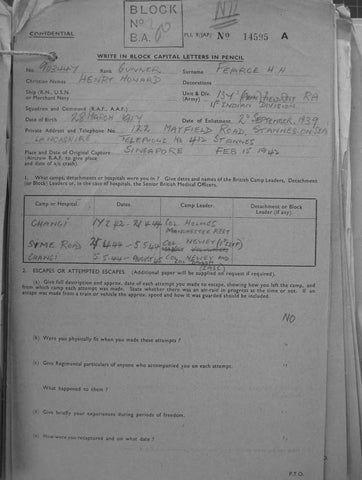 BLOCK
No
B.A.
CONFIDENTIAL
No 14595 A
WRITE IN BLOCK CAPITAL LETTERS IN PENCIL
No. Rank GUNNER Surname PEARCE H H
Christian Names HENRY HOWARD Decorations
Ship (R.N., U.S.N. or Merchant Navy) Unit & Div. (Army) RA
11th INDIAN DIVISION
Squadron and Command (R.A.F., A.A.F.)
Date of Birth 28 MARCH Date of Enlistment 2nd SEPTEMBER 1939
Private Address and Telephone No. 122 MAYFIELD ROAD, ST ANNES, ON SEA
LANCASHIRE TELEPHONE No 412 ST ANNES
Place and Date of Original Capture SINGAPORE FEB 15 1942
(Aircrew R.A.F. to give place
and date of a/c crash).
1. What camps, detachments or hospitals were you in? Give dates and names of the British Camp Leaders, Detachment
(or Block) Leaders or, in the case of hospitals, the Senior British Medical Officers.
Camp or Hospital. Date. Camp Leader. Detachment or Block Leader (if any).
CHANGI 17 2 42 - COL HOLMES
MANCHESTER REGT
SIME ROAD - 5 5 44 COL NEWEY
CHANGI 5 5 44 - COL NEWEY
2. ESCAPES or ATTEMPTED ESCAPES. (Additional paper will be supplied on request if required).
(a) Give full description and approx. date of each attempt you made to escape, showing how you left the camp, and
from which camp each attempt was made. State whether there was an air-raid in progress at the time or not. If an
escape was made from a train or vehicle the approx. speed and how it was guarded should be included.
NO
(b) Were you physically fit when you made these attempts?
(c) Give Regimental particulars of anyone who accompanied you on each attempt.
What happened to them?
(d) Give briefly your experiences during periods of freedom.
(e) How were you recaptured and on what date?
P.T.O.